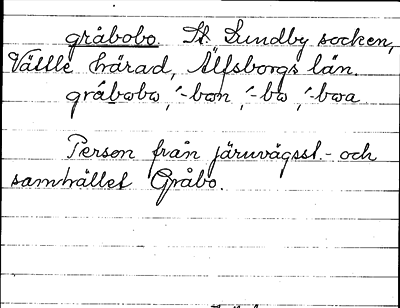 gråbobo St. Lundby socken,
Vättle härad, Älfsborgs län.
gråbobo, ´-bon, ´-bo, ´-boa
Person från järnvägsst.- och
samhället Gråbo.